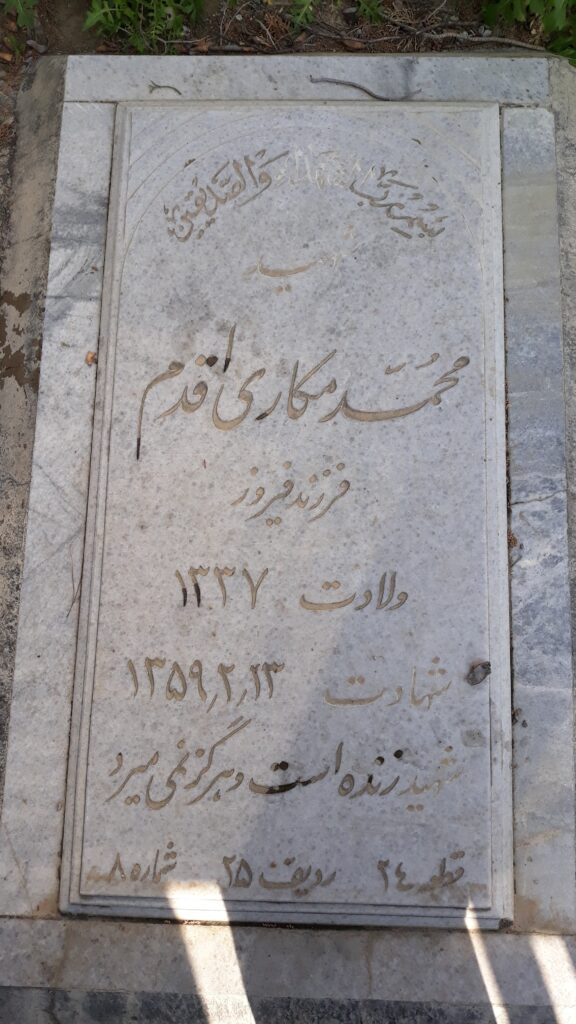 بسم رب الشهداء والصدیقین
شهید
محمد مکاری اقدم
فرزند فیروز
ولادت ۱۳۳۷
شهادت ۱۳۵۹٫۲٫۱۳
شهید زنده است و هرگز نمی میرد
قطعه ۲۴ ردیف ۲۵ شماره ۸